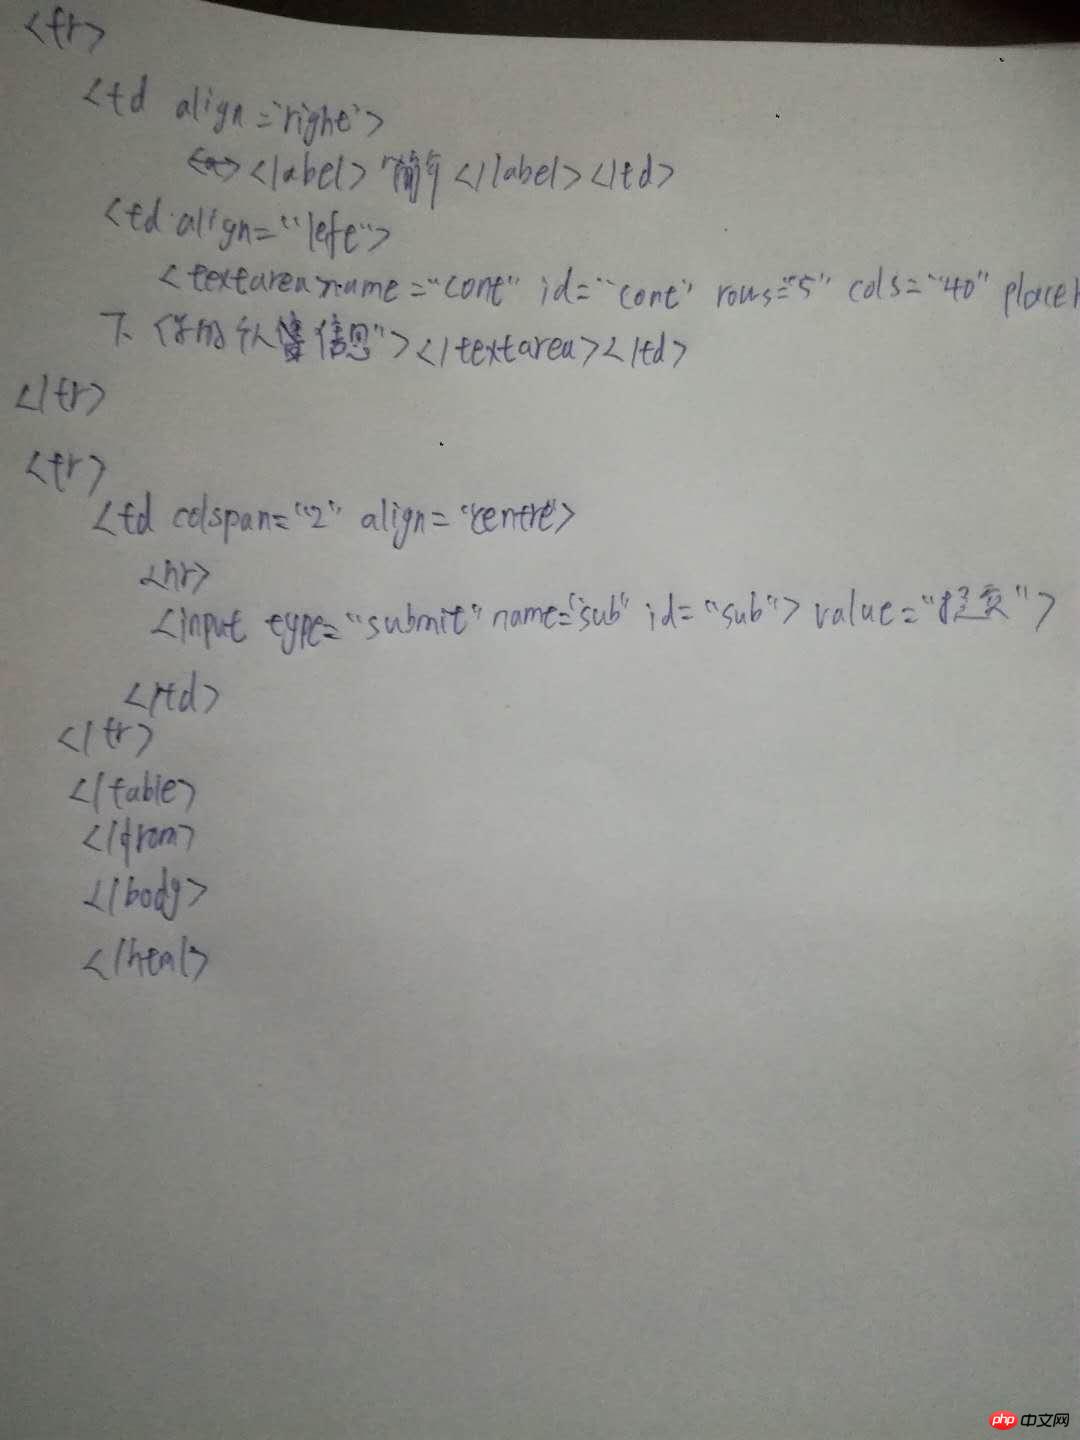 <tr>
<td align="right">
<label>简介</label></td>
<td align="left">
<textarea name="cont" id="cont" rows="5" cols="40" placeh
下你的 信息"></textarea></td>
</tr>
<tr>
<td colspan="2" align="centre">
<hr>
<input type="submit" name="sub" id="sub"> value="提交">
</td>
</tr>
</table>
</from>
</body>
</html>
php 中文网